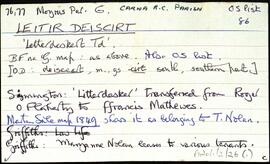 76,77 Moyrus Par. G. CARNA R.C. PARISH OS Sheet
86
LEITIR DEISCIRT
'Letterdeskert Td'
BF na G. map: as above. Also OS Sheet
[OD: deisceart m., gs. -cirt south, southern part.]
Symington: 'Litterdesker' Transferred from Roger
O Flaherty to ffrancis Mathewes.
Martin Sale map 1849 shows it as belonging to T. Nolan.
Griffiths:
Griffith: Nolan leases to various tenants.